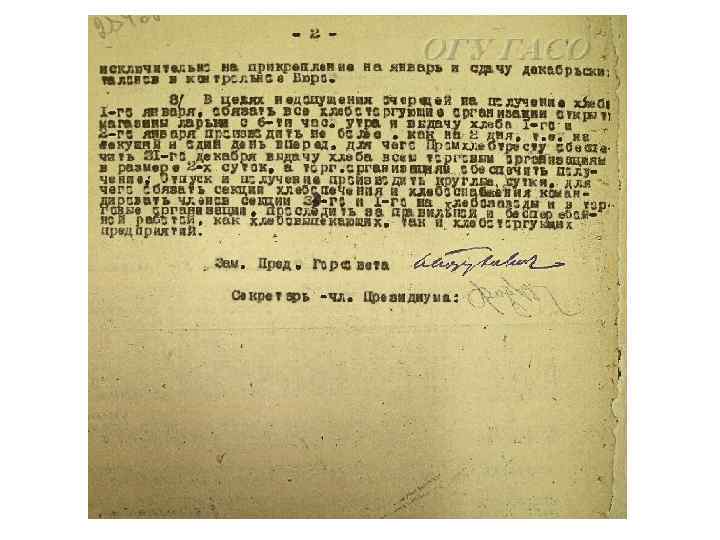 - 2 -
ОГУ ГАСО
исключительно на прикрепление на январь и сдачу декабрьски
талонов в контрольное Бюро.
8/ В целях недопущения очередей на получение хлеба
1-го января, обязать все хлеботоргующие организации открыть
магазины ларьки с 6-ти час. утра и выдачу хлеба 1-го и
2-го января производить не более , как на 2 дня, т.е. на
текущий и один день вперед, для чего Промхлебтресту обеспе-
чить 31-го декабря выдачу хлеба всем торговым организациям
в размере 2-х суток, а торг.организациям обеспечить полу-
чение; Отпуск и получение производить круглые сутки, для
чего обязать секции хлебопечения и хлебоснабжения коман-
дировать членов секции 31-го и 1-го на хлебозаводы и в тор-
говые организации, проследить за правильной и бесперебой-
ной работой, как хлебовыпекающих, так и хлеботоргующих
предприятий.
Зам. Пред. Горсовета
Секретарь -чл. Президиума: